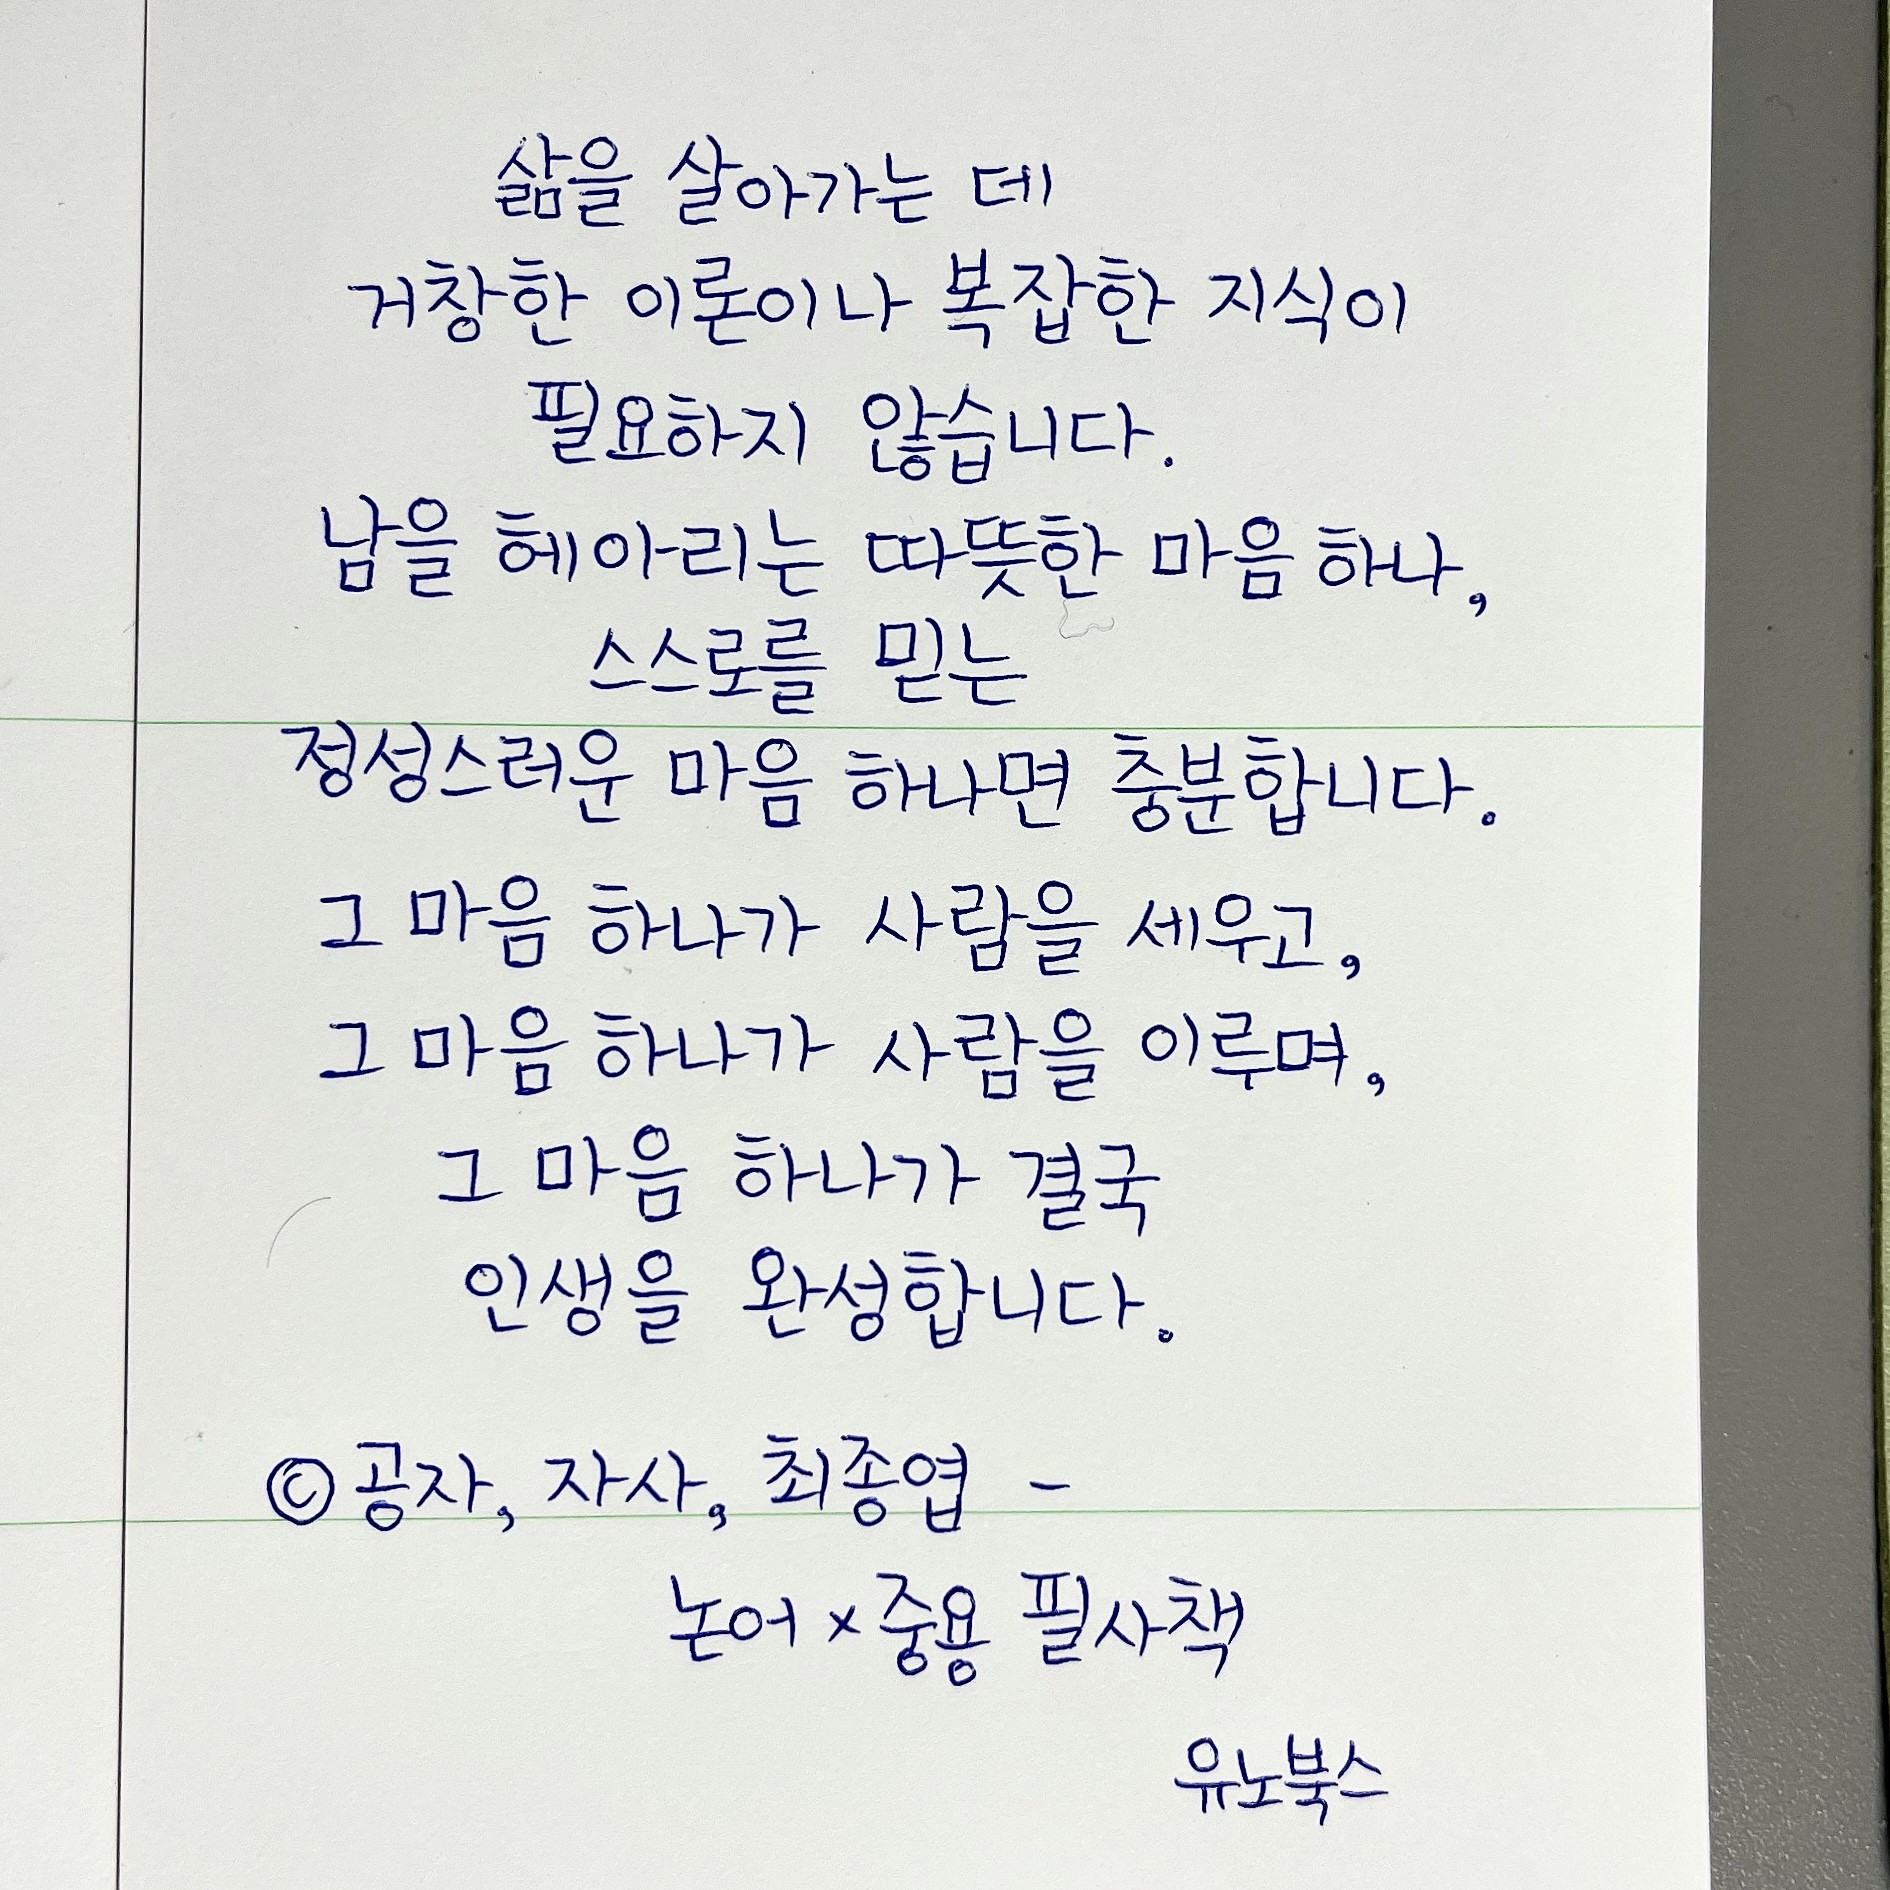 삶을 살아가는 데
거창한 이론이나 복잡한 지식이
필요하지 않습니다.
남을 헤아리는 따뜻한 마음 하나,
스스로를 믿는
정성스러운 마음 하나면 충분합니다.
그 마음 하나가 사람을 세우고,
그 마음 하나가 사람을 이루며,
그 마음 하나가 결국
인생을 완성합니다.
© 공자, 자사, 최종엽 -
논어 x 중용 필사책
유노북스